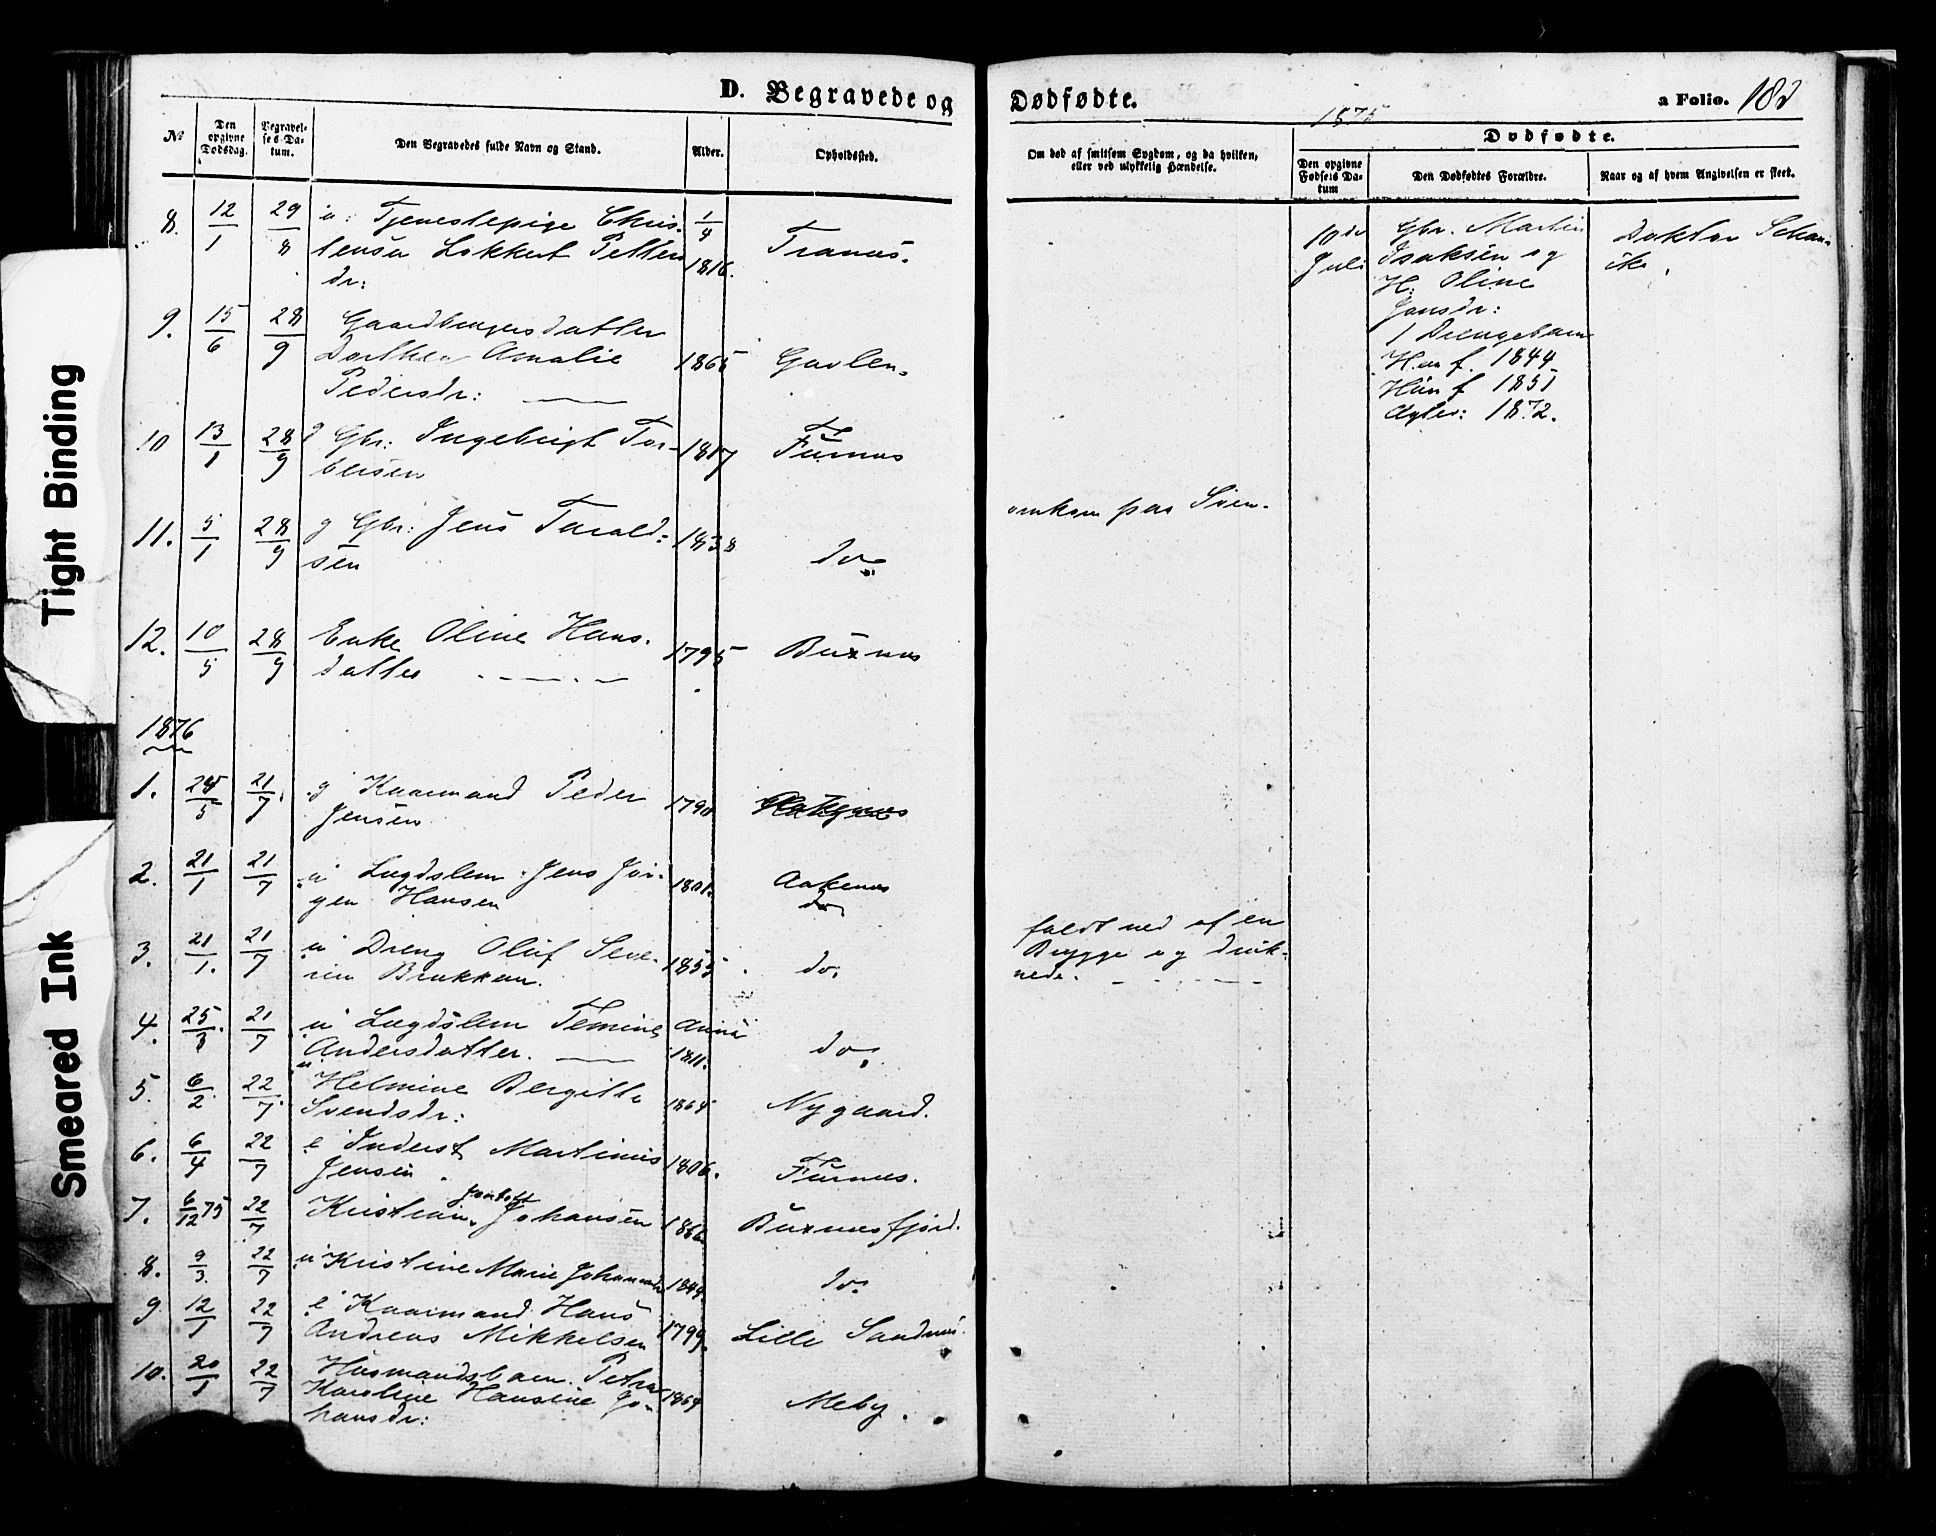 D. Begravede og
Dødfødte.
a Folio. 182
1875
№
Den opgivne Dødsdag.
Begravelses Datum.
Den Begravedes fulde Navn og Stand.
Alder.
Opholdssted.
Om død af smitsom Sygdom, og da hvilken,
eller ved ulykkelig Hændelse.
Dødfødte.
Den opgivne Fødsels Datum
Den Dødfødtes Forældre.
Naar og af hvem Angivelsen er skeet.
8. 12/1 29/8 u: Tjenestepige Chris-
tensa Lokkert Petters
dr: 1816. Tranøs.
9. 15/6 28/9 Gaardbrugersdatter
Dorthea Amalie 1865 Gavlen.
Pedersdr:
10 13/1 28/9 g Gbr: Ingebrigt Tor- 1817 Furnes
bersen
11. 5/1 28/9 g Gbr: Jens Tarald- 1838 do.
sen
omkom paa Søen.
12. 10/5 28/9 Enke Oline Hans- 1795 Buxnes
datter
10de
Juli
Gbr. Martin
Isaksen og
H: Oline
Jansdr:
1 Drengebarn
Han f. 1844
Hun f 1851
Ægtev: 1872.
Doktor
1876
1. 21/7 g Kaarmand Peder 1790
Jensen
2. 21/1 21/7 u Lægdslem Jens Jør- 1801. Aakenes
gen Hansen do
3. 21/1. 21/7 u Dreng Oluf Seve- 1855 do.
rin Brukkan.
faldt ned af en
Brygge og druk-
nede.
4. 25/3 21/7 u Lægdslem
Andersdatter. 1811. do.
5. 6/2 22/7 u Helmine Bergitte
Svendsdr: 1865 Nygaard.
6. 6/4 22/7 e Inderst Martinus 1806. Furnes.
Jensen
7. 6/12 75 22/7 Kristian Johansen 1866 Buxnesfjord.
8. 9/3 22/7 u Kristine Marie 1849. do.
9 12/1 22/7 e Kaarmand Hans
Andreas Mikkelsen 1799. Lille Sandnes.
10. 20/1 22/7 Husmandsbarn Petra
Karoline Hansine Jo- 1864 Meby.
hansdr:
Tight Binding
Smeared Ink